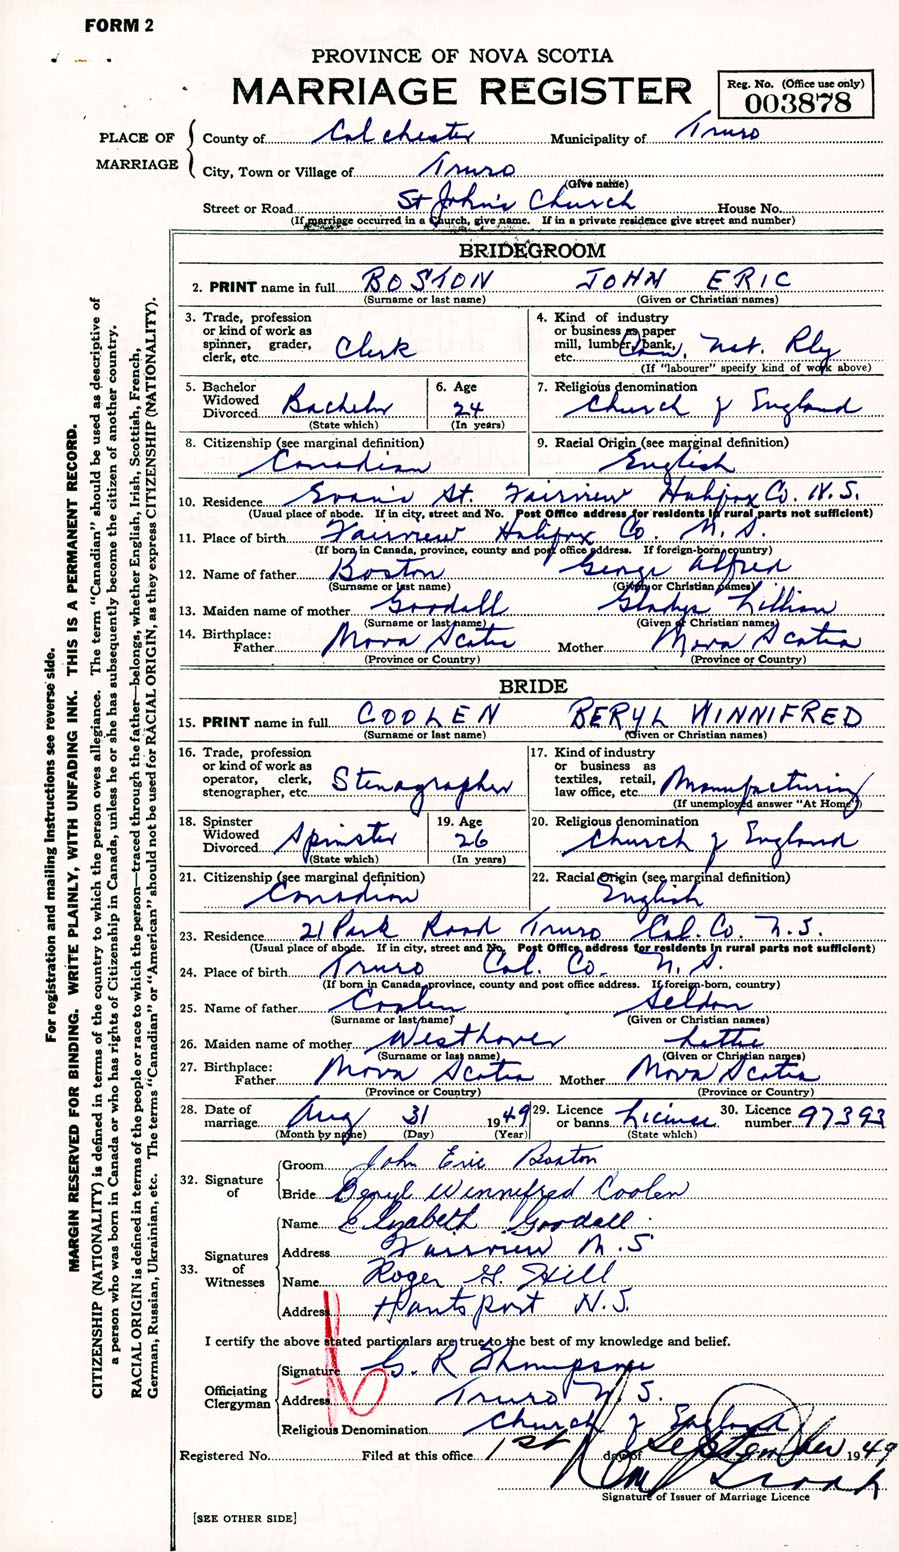 FORM 2
PROVINCE OF NOVA SCOTIA
MARRIAGE REGISTER
Reg. No. (Office use only)
003878
PLACE OF MARRIAGE
County of Colchester Municipality of Truro
City, Town or Village of Truro
(Give name)
Street or Road St John's Church House No.
(If marriage occurred in a Church, give name. If in a private residence give street and number)
BRIDEGROOM
2. PRINT name in full BOSTON JOHN ERIC
(Surname or last name) (Given or Christian names)
3. Trade, profession or kind of work as spinner, grader, clerk, etc. Clerk
4. Kind of industry or business as paper mill, lumber, bank, etc. Can. Nat. Rly
(If "labourer" specify kind of work above)
5. Bachelor Widowed Divorced Bachelor
(State which)
6. Age 24
(In years)
7. Religious denomination
Church of England
8. Citizenship (see marginal definition)
Canadian
9. Racial Origin (see marginal definition)
English
10. Residence Evans St. Fairview Halifax Co. N.S.
(Usual place of abode. If in city, street and No. Post Office address for residents in rural parts not sufficient)
11. Place of birth Fairview Halifax Co. N.S.
(If born in Canada, province, county and post office address. If foreign-born, country)
12. Name of father Boston George Alfred
(Surname or last name) (Given or Christian names)
13. Maiden name of mother Goodall Gladys Lillian
(Surname or last name) (Given or Christian names)
14. Birthplace: Father Nova Scotia Mother Nova Scotia
(Province or Country) (Province or Country)
BRIDE
15. PRINT name in full COOLEN BERYL WINNIFRED
(Surname or last name) (Given or Christian names)
16. Trade, profession or kind of work as operator, clerk, stenographer, etc. Stenographer
17. Kind of industry or business as textiles, retail, law office, etc. Manufacturing
(If unemployed answer "At Home")
18. Spinster Widowed Divorced Spinster
(State which)
19. Age 26
(In years)
20. Religious denomination
Church of England
21. Citizenship (see marginal definition)
Canadian
22. Racial Origin (see marginal definition)
English
23. Residence 21 Park Road Truro Col. Co. N.S.
(Usual place of abode. If in city, street and No. Post Office address for residents in rural parts not sufficient)
24. Place of birth Truro Col. Co. N.S.
(If born in Canada, province, county and post office address. If foreign-born, country)
25. Name of father Coolen Seldon
(Surname or last name) (Given or Christian names)
26. Maiden name of mother Westhaver Lettie
(Surname or last name) (Given or Christian names)
27. Birthplace: Father Nova Scotia Mother Nova Scotia
(Province or Country) (Province or Country)
28. Date of marriage Aug 31 1949
(Month by name) (Day) (Year)
29. Licence or banns License
(State which)
30. Licence number 97393
32. Signature of
Groom John Eric Boston
Bride Beryl Winnifred Coolen
33. Signatures of Witnesses
Name Elizabeth Goodall
Address Fairview N.S
Name Roger G. Hill
Address Hantsport N.S.
I certify the above stated particulars are true to the best of my knowledge and belief.
Officiating Clergyman
Signature G. R Thompson
Address Truro N.S.
Religious Denomination Church of England
Registered No. Filed at this office 1st day of September 1949
Signature of Issuer of Marriage Licence
[SEE OTHER SIDE]
For registration and mailing instructions see reverse side.
MARGIN RESERVED FOR BINDING. WRITE PLAINLY, WITH UNFADING INK. THIS IS A PERMANENT RECORD.
CITIZENSHIP (NATIONALITY) is defined in terms of the country to which the person owes allegiance. The term "Canadian" should be used as descriptive of
a person who was born in Canada or who has rights of Citizenship in Canada, unless he or she has subsequently become the citizen of another country.
RACIAL ORIGIN is defined in terms of the people or race to which the person—traced through the father—belongs, whether English, Irish, Scottish, French,
German, Russian, Ukrainian, etc. The terms "Canadian" or "American" should not be used for RACIAL ORIGIN, as they express CITIZENSHIP (NATIONALITY).